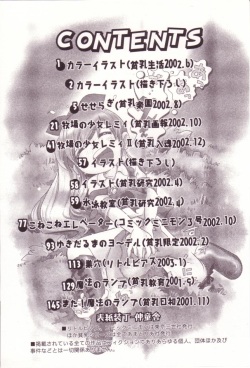 CONTENTS
1 カラーイラスト(貧乳生活2002.6)
2 カラーイラスト(描き下ろし)
5 せせらぎ(貧乳楽園2002.8)
21 牧場の少女レミィ(貧乳画報2002.10)
41 牧場の少女レミィII(貧乳 2002.12)
57 イラスト(描き下ろし)
58 イラスト(貧乳研究2002.4)
59 水泳教室(貧乳研究2002.4)
77 こねこねエレベーター(コミックミニモン3号2002.10)
93 ゆきだるまのヨ〜デル(貧乳限定2002.2)
113 巣穴(リトルピアス2003.1)
129 魔法のランプ(貧乳教育2001.5)
145 また!魔法のランプ(貧乳日和2001.11)
表紙装丁
■掲載されている全ての作品はフィクションでありあらゆる個人、団体ほか及び
事件などとは一切関係ありません。